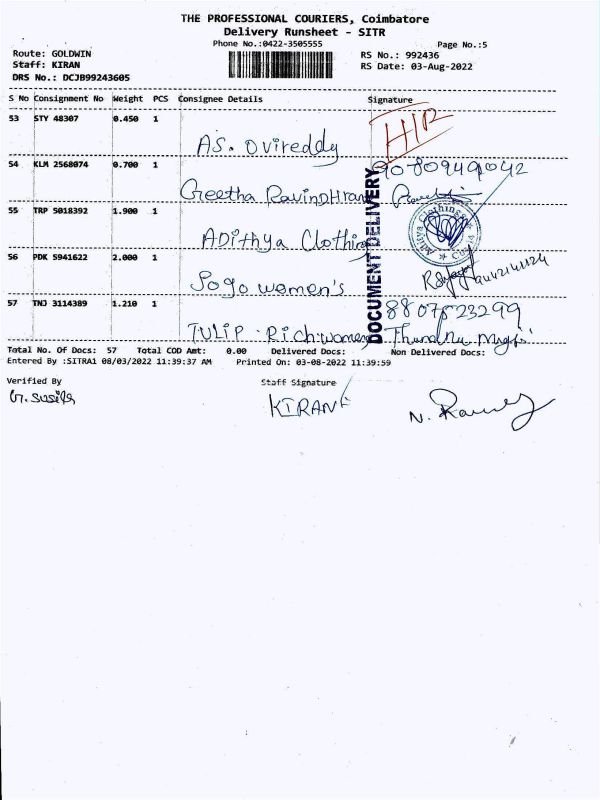 THE PROFESSIONAL COURIERS, Coimbatore
Delivery Runsheet - SITR
Phone No.:0422-3505555
Page No.:5
Route: GOLDWIN
RS No.: 992436
Staff: KIRAN
RS Date: 03-Aug-2022
DRS No.: DCJB99243605
S No Consignment No Weight PCS Consignee Details Signature
53 STY 48307 0.450 1
AS. Ovireddy
HIR
54 KLM 2568074 0.700 1
Geetha RavindHran
55 TRP 5018392 1.900 1
ADithya Clothing
56 PDK 5941622 2.000 1
Sogo women's
57 TNJ 3114389 1.210 1
8807523299
TULIP Rich women
DOCUMENT DELIVERY
Total No. Of Docs: 57 Total COD Amt: 0.00 Delivered Docs: Non Delivered Docs:
Entered By :SITRA1 08/03/2022 11:39:37 AM Printed On: 03-08-2022 11:39:59
Verified By
Staff Signature
G. Susila
KIRAN